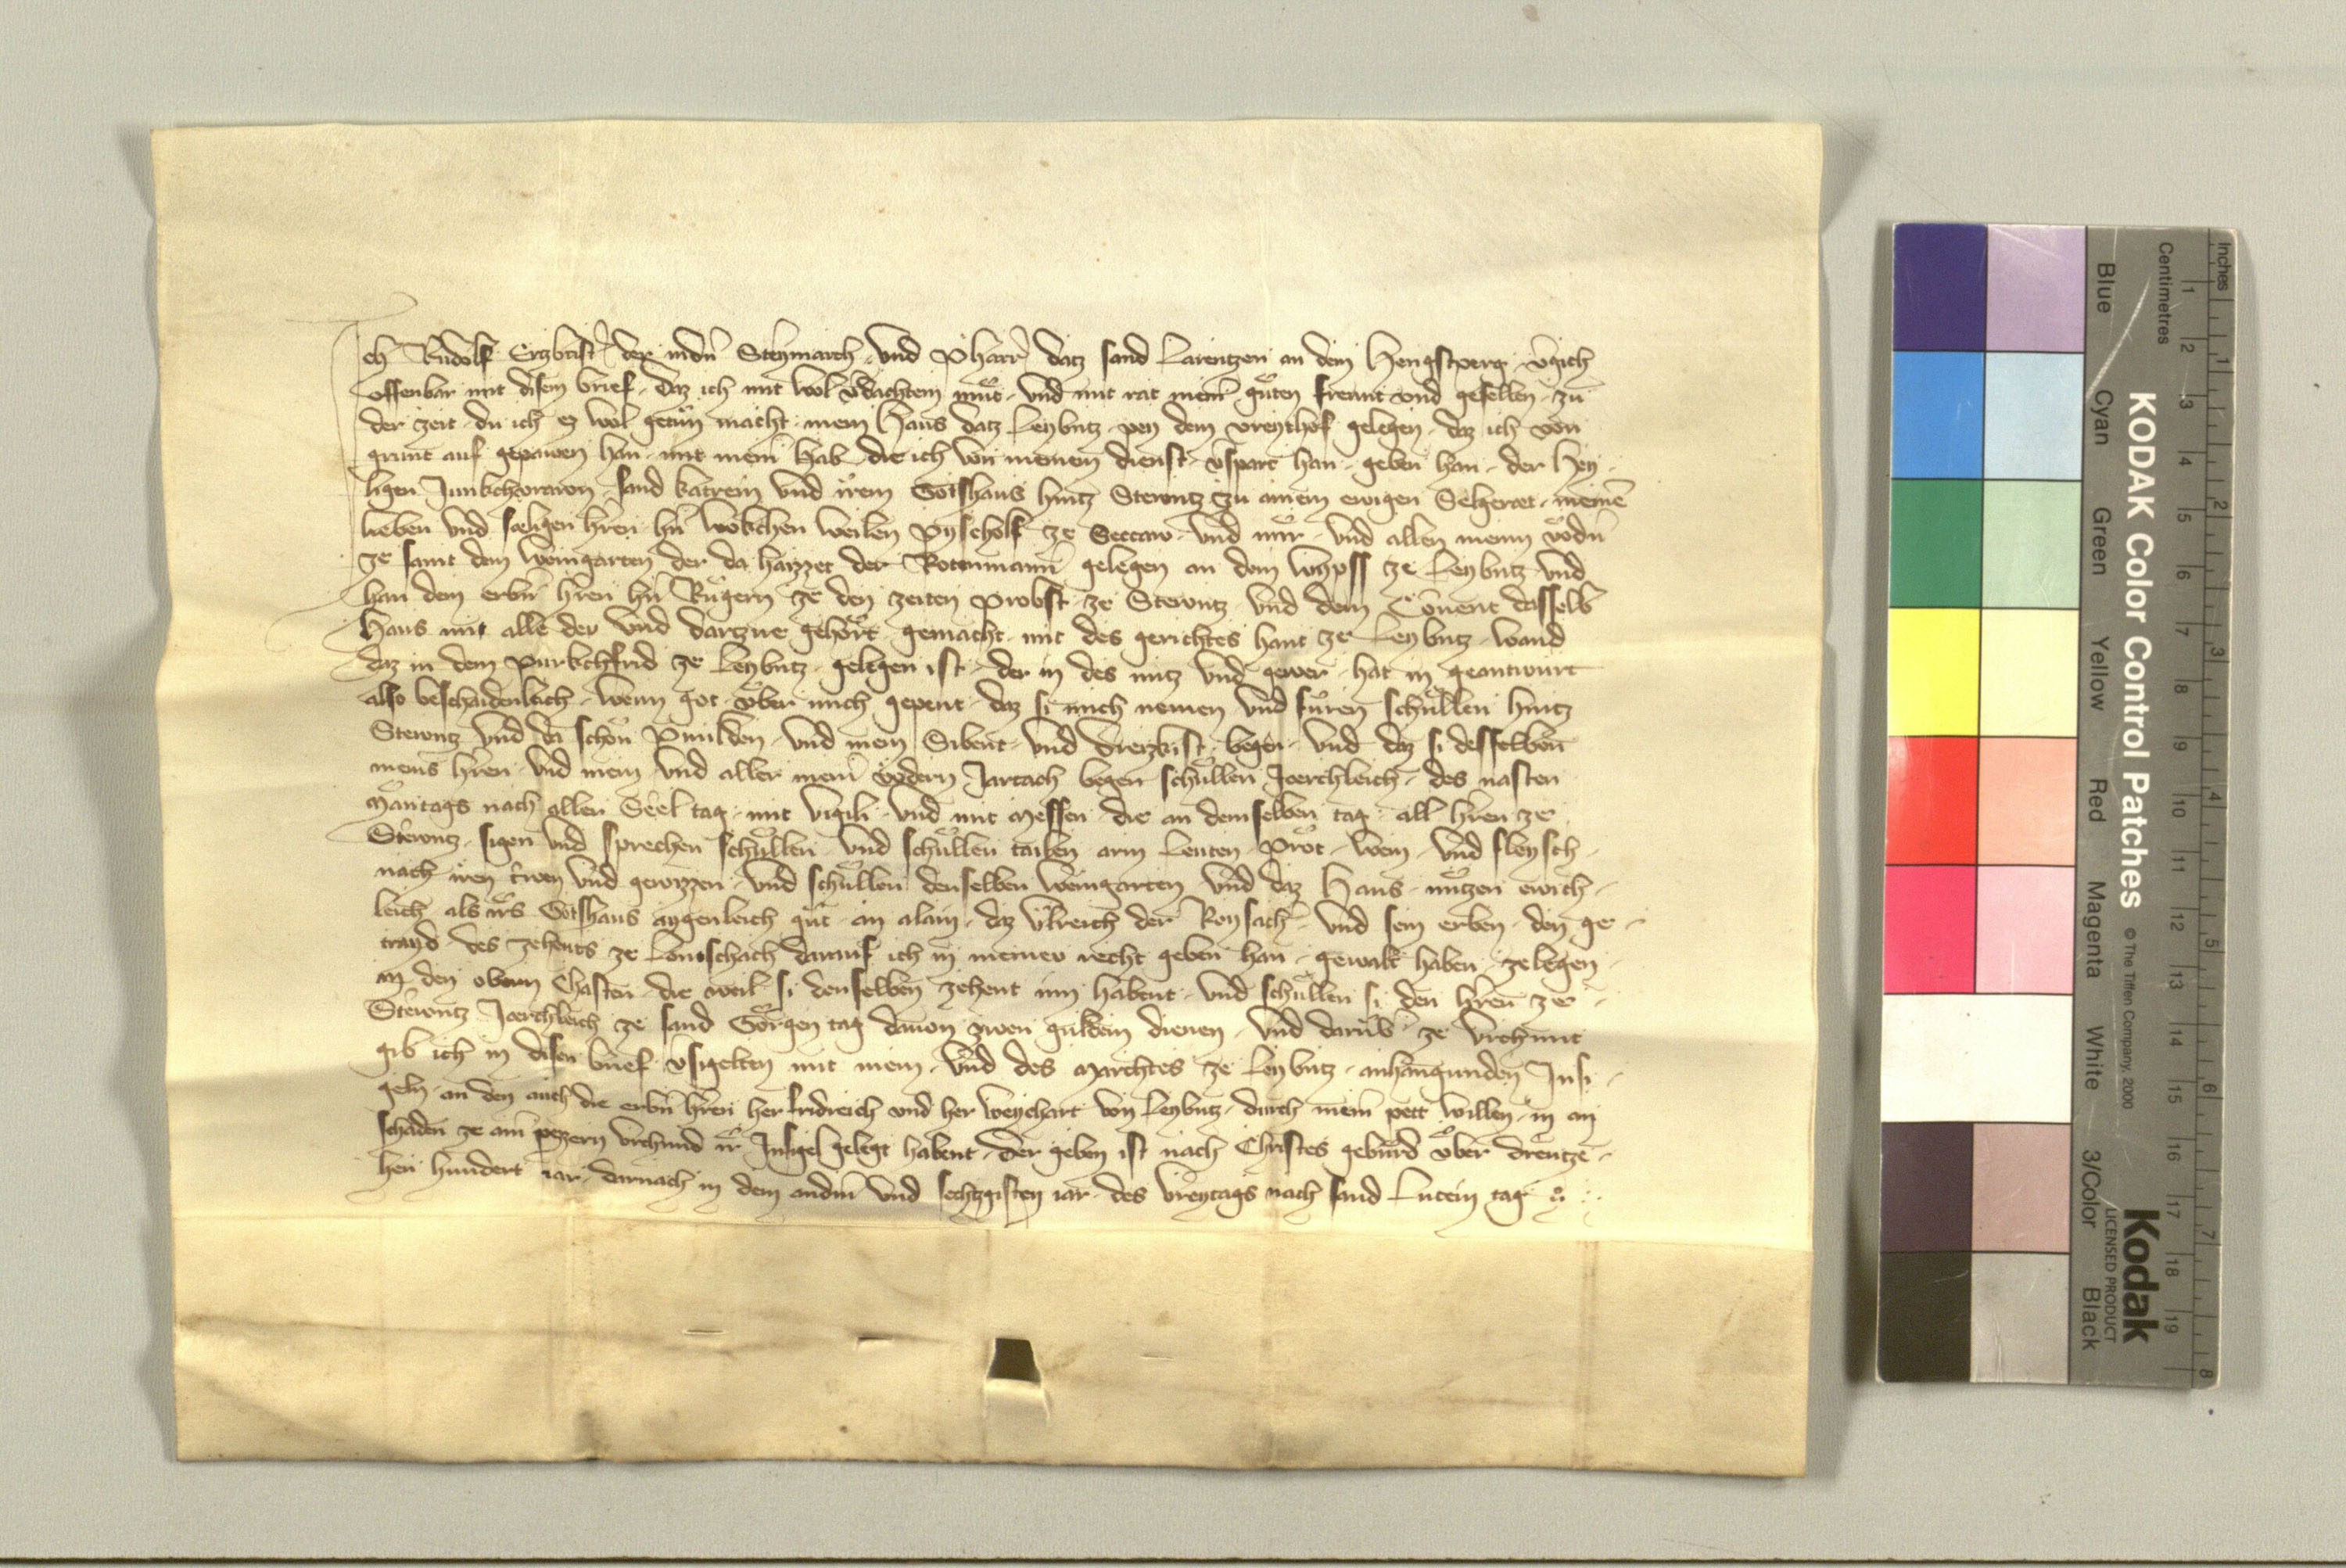 Ich Rudolf Erzbrist der nidn Steymarch und Pharr datz sand Larentzen an dem Hengstperg vgich
offenbar mit disem brief daz ich mit wol vdachtem mut und mit rat meinr guten freunt und gesellen zu
der zeit du ich ez wol getun macht mein Haus datz Leybntz pey dem vreythof gelegen daz ich von
grunt auf gepawen han mit meinr hab die ich von meinem dienst vspart han geben han der Hey
ligen Junkchvrawn sand katrein und irem Gotshaus hintz Stewntz zu ainem ewigen Selgeret meinē
lieben und sæligen hren hn wlokchen weilen Pyscholf ze Seccaw und mir und allen meinn vodn
ze samt dem weingarten der da haizzet der Rotenmann gelegen an dem ze Leybntz und
han dem erbn hren hn Rugern ze den zeiten Probst ze Stewntz und dem Couent dasselb
Haus mit alle der und dartzue gehort gemacht mit des gerichtes hant ze Leybntz wand
daz in dem Purkchfrid ze Leybntz gelegen ist der in des nutz und gewer hat in geantwurt
also beschaidenleich wenn got uber mich gepeut daz si mich nemen und furen schullen hintz
Stewntz und da schon Pmilden und mein Sibent und Dreizkist begen und daz si desselben
meins hren und mein und aller meinr vodern Jartach begen schullen Jærchleich des nasten
Mantags nach allen Seel tag mit vigili und mit Messen die an demselben tag all hren ze
Stewntz sigen und sprechen schullen und schullen tailen arm Leuten Prot wein und fleysch
nach iren trwen und gewizzen und schullen denselben weingarten und daz Haus nutzen ewich
leich als irs Gotshaus aygenleich gut an alain daz Ulreich der Reysach und sein erben den ge
trayd des zehents ze Lontschach darauf ich in meinev recht geben han gewalt haben ze legen
in den obern Chasten die weil si denselben zehent inn habent und schullen si den hren ze
Stewntz Jærchleich ze sand Gorgen tag dauon zwen guldein dienen und darub ze vrchunt
gib ich in disen brief vsigelten mit mein und des Marchtes ze Leybntz anhangunden Insi
geln an den auch die erbn hren her fridreich und her weychart von Leybntz durch meinr pett willen in an
schaden ze aim pezzern vrchund ir Insigel gelegt habent der geben ist nach Christes geburd uber dreutze
hen hundert iar darnach in dem andrn und sechtzgisten iar des vreytags nach sand Lucein tag
KODAK Color Control Patches
© The Tiffen Company, 2000
Kodak
LICENSED PRODUCT
Inches
Centimetres
1 2 3 4 5 6 7 8 9 10 11 12 13 14 15 16 17 18 19
1 2 3 4 5 6 7 8
Blue
Cyan
Green
Yellow
Red
Magenta
White
3/Color
Black